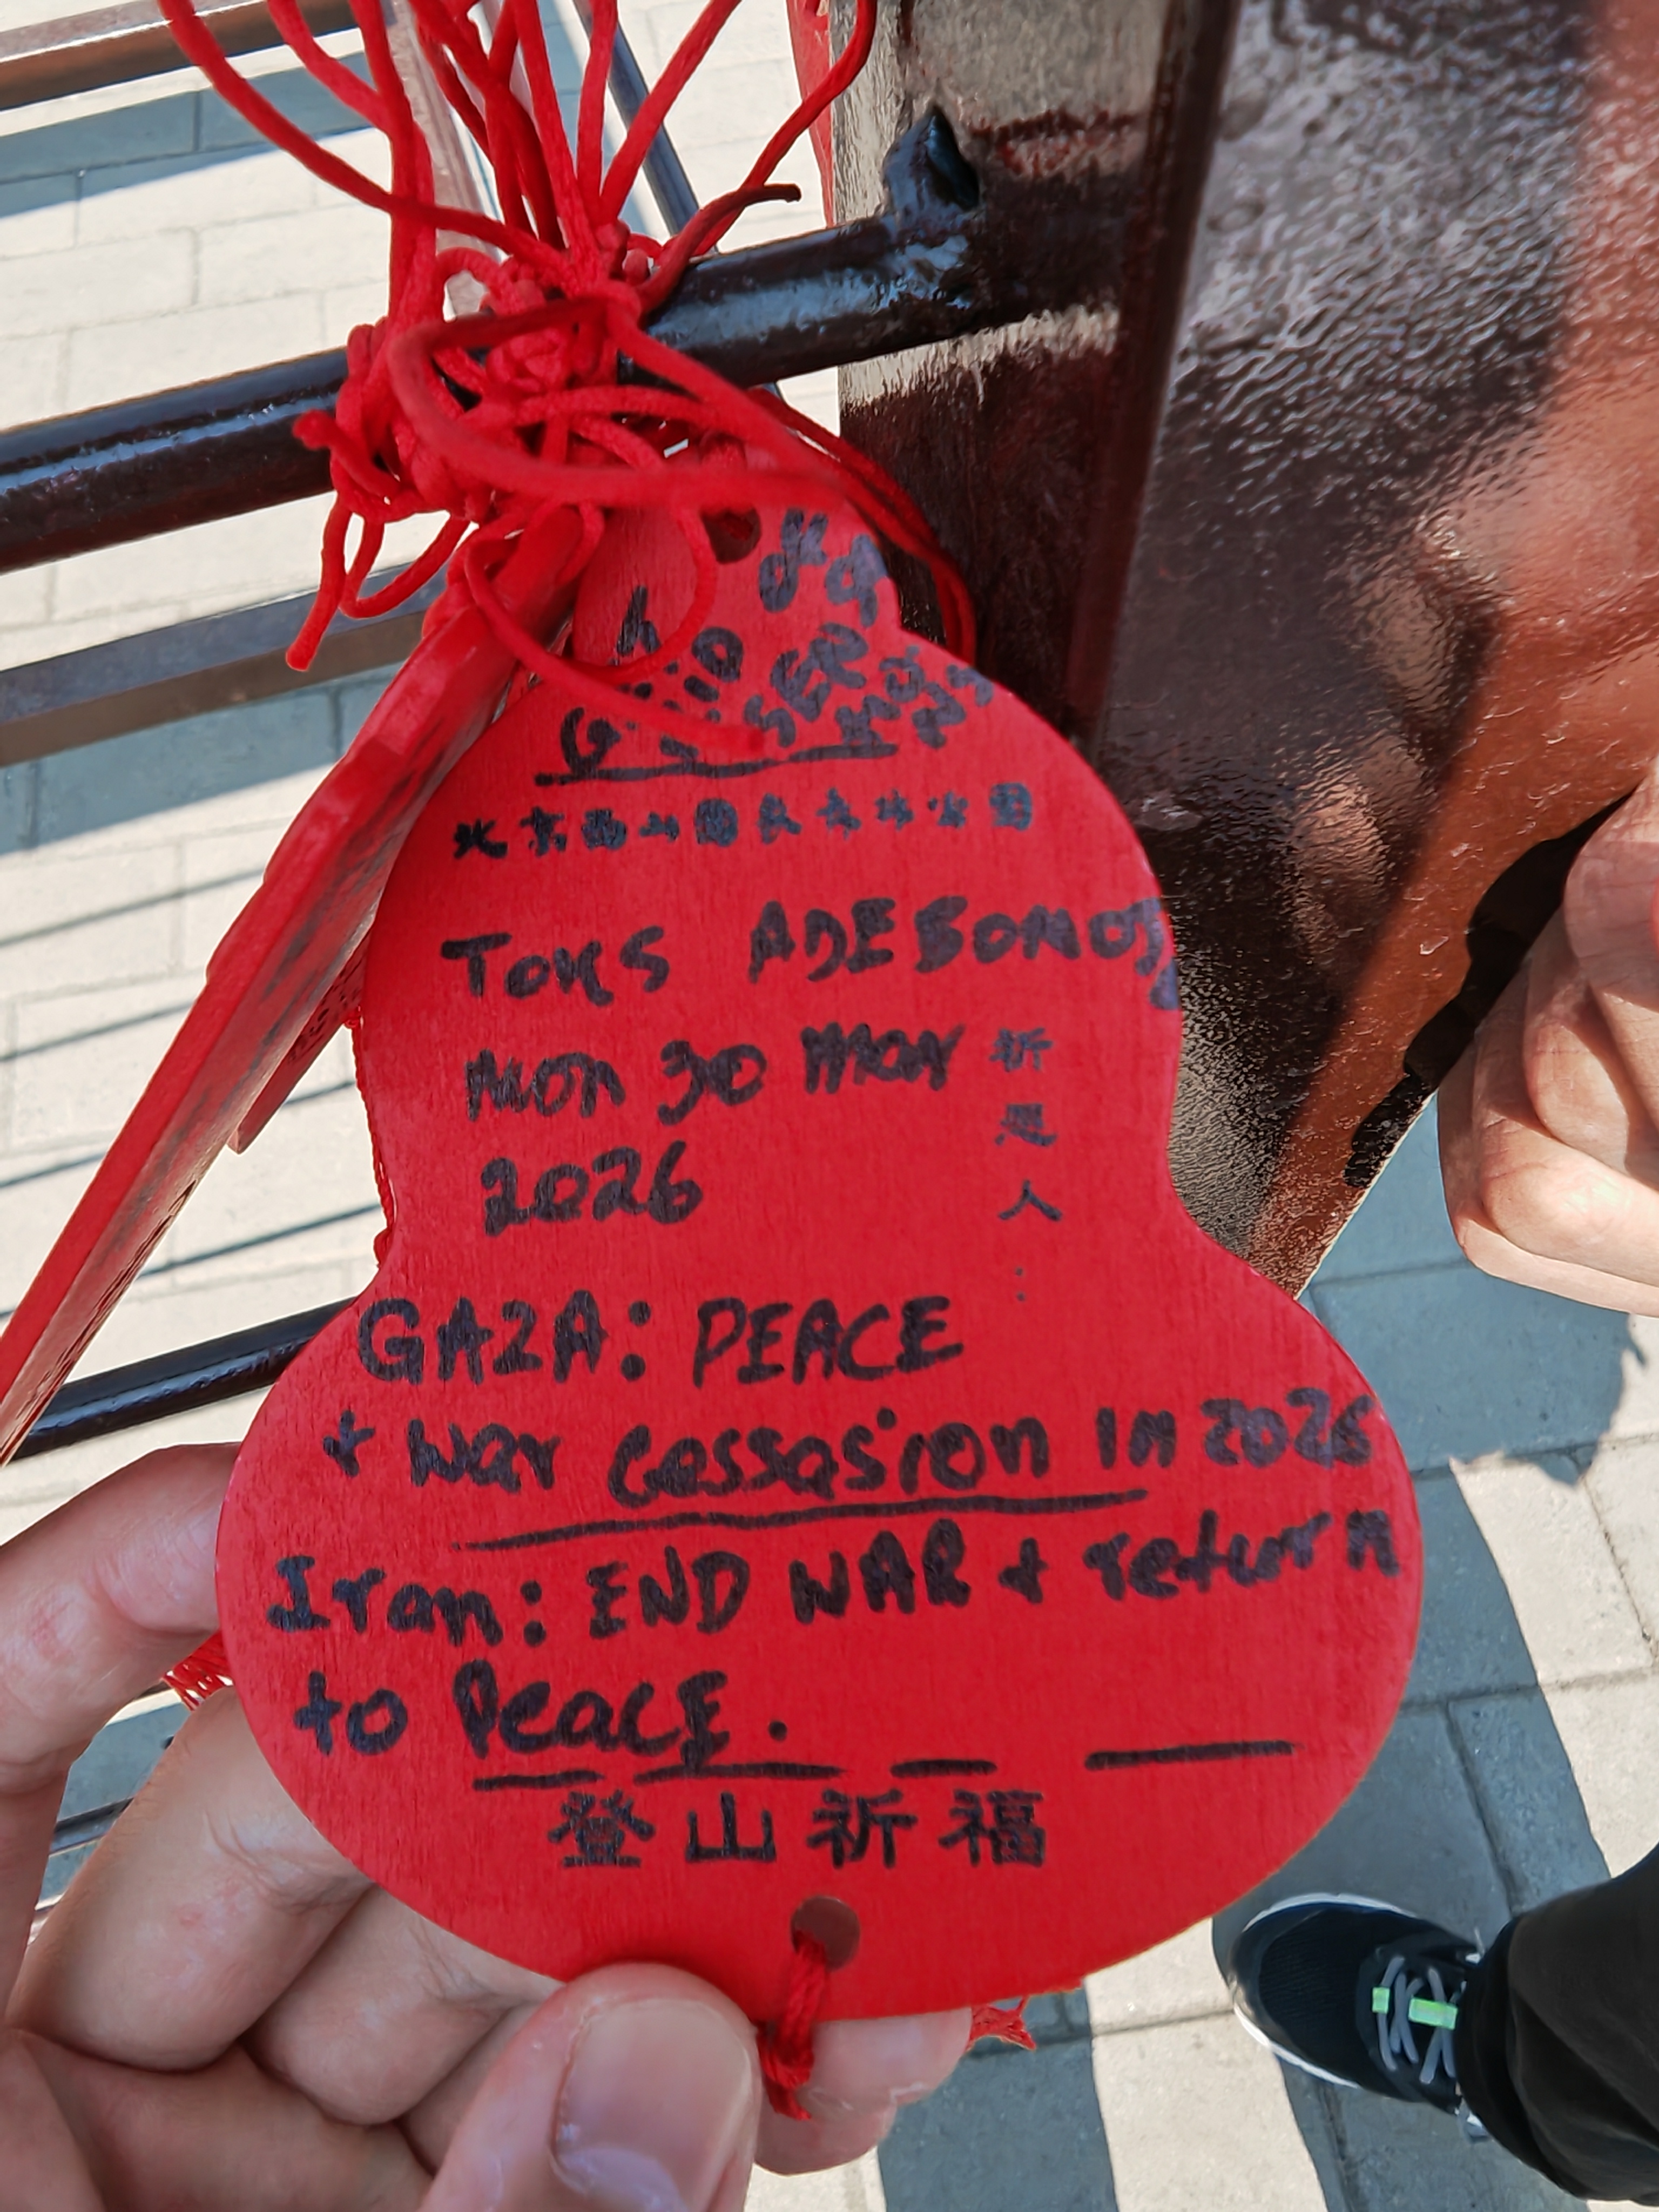 北京西山国家森林公园
TOKS ADEBOMOJ
MON 30 MAR
2026
祈愿人:
GAZA: PEACE
+ War Cessasion IN 2026
Iran: END WAR + return
to PeacE.
登山祈福